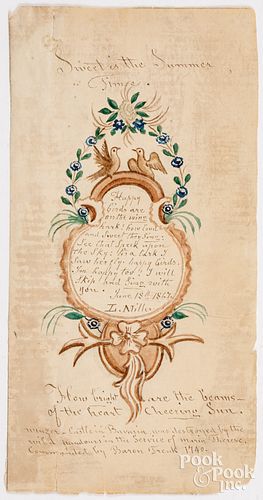 Sweet is the Summer
Time.
Happy
birds are
on the wing
hark! how loud
and sweet they Sing.
See that Speck upon
the Sky: tis a lark I
saw her fly. happy birds.
You happy too! I will
Skip and Sing with
you.
June 18th 1862.
L. Miller
How bright are the beams
of the heart Cheering Sun.
Castle Bavaria was destroyed by the
wild in the Service of Maria Therese,
Commanded by Baron Trenk 1740.
Pook &
Pook Inc.